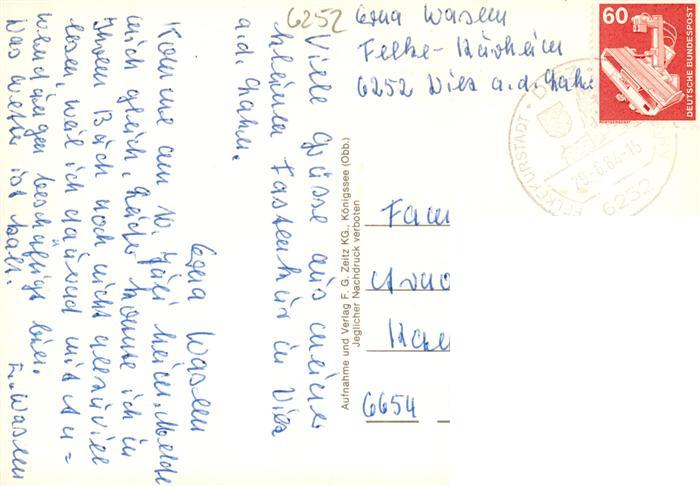 6252
Erna Wasem
Felke-Kurheim
6252 Diez a.d. Lahn
60
DEUTSCHE BUNDESPOST
RÖNTGENGERÄT
FELKEKURSTADT · D
29.-6.84-15
6252
LAHN
Viele Grüsse aus meiner
kleinen Fastenkur in Diez
a.d. Lahn.
Erna Wasem
Komme am 10. Juli heim. Melde
mich gleich. Leider konnte ich in
Ihrem Buch noch nicht allzuviel
lesen, weil ich dauernd mit An=
wendungen beschäftigt bin.
Das Wetter ist kalt.
E. Wasem
Aufnahme und Verlag F. G. Zeitz KG., Königssee (Obb.)
Jeglicher Nachdruck verboten
Fam
6654